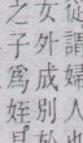 從謂婦人也
女外成別於
之子爲姪